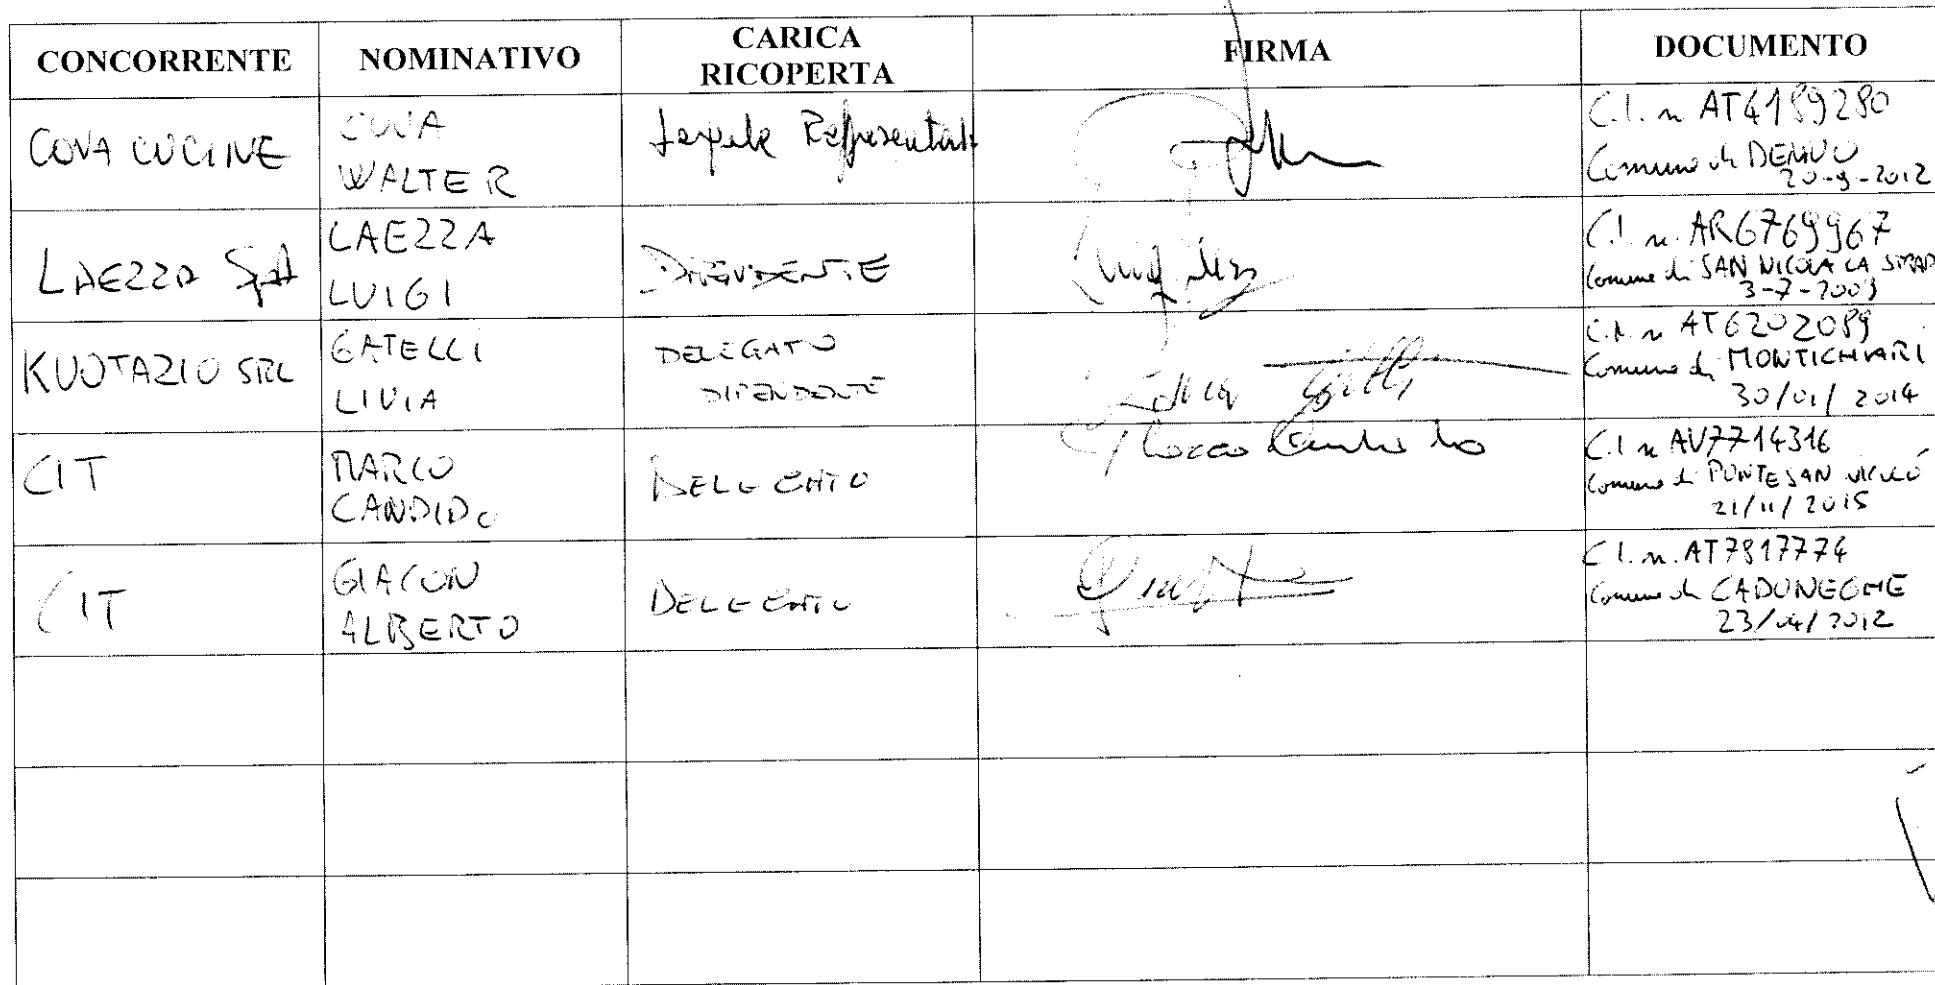 CONCORRENTE NOMINATIVO CARICA RICOPERTA FIRMA DOCUMENTO
COVA CUCINE
COVA
WALTER
Legale Rappresentante
C.I. n AT4189280
Comune di DENNO
20-9-2012
LAEZZA SpA
LAEZZA
LUIGI
DIPENDENTE
C.I. n. AR6769967
Comune di SAN NICOLA LA STRADA
3-7-2009
KUOTAZIO SRL
GATELLI
LIVIA
DELEGATO
DIPENDENTE
C.I. n AT6202089
Comune di MONTICHIARI
30/01/2014
CIT
MARCO
CANDIDO
DELEGATO
Marco Candido
C.I n AV7714316
Comune di PONTE SAN NICOLÓ
21/11/2015
CIT
GIACON
ALBERTO
DELEGATO
C.I. n. AT7817774
Comune di CADONEGHE
23/04/2012